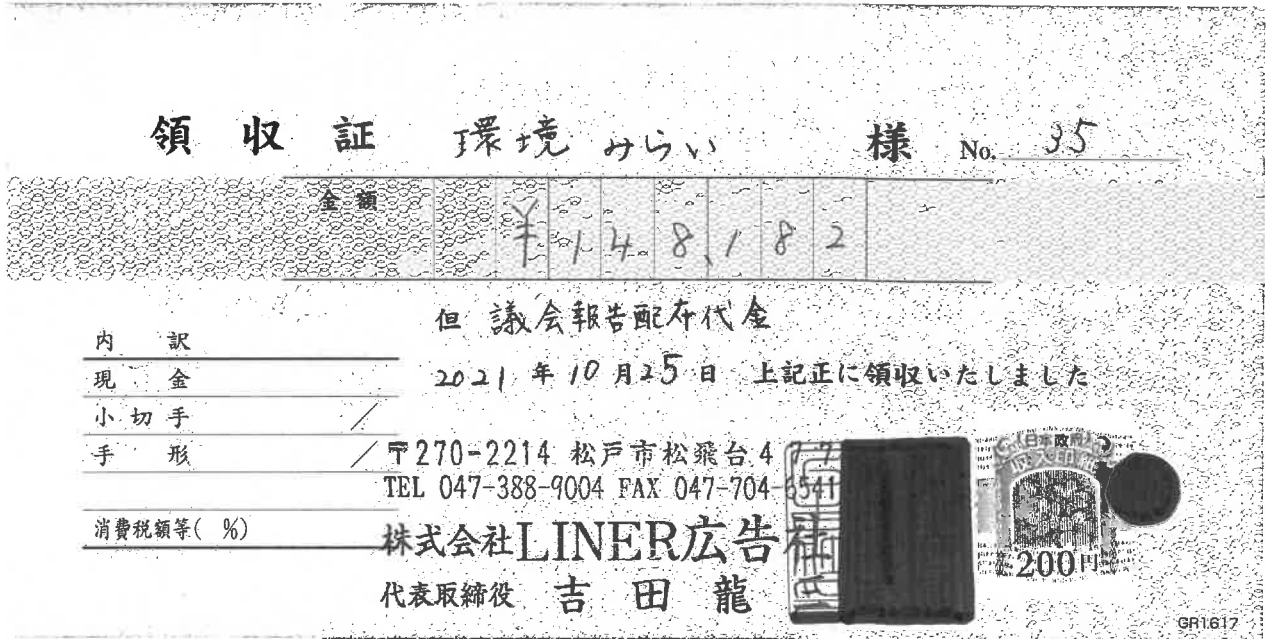 領収証 環境みらい 様 No. 35
金額 ¥148,182
但 議会報告配布代金
2021年10月25日 上記正に領収いたしました
内訳
現金
小切手 /
手形 /
消費税額等( %)
〒270-2214 松戸市松飛台4
TEL 047-388-9004 FAX 047-704-6541
株式会社LINER広告社
代表取締役 吉田龍
日本政府
200円
GR1617